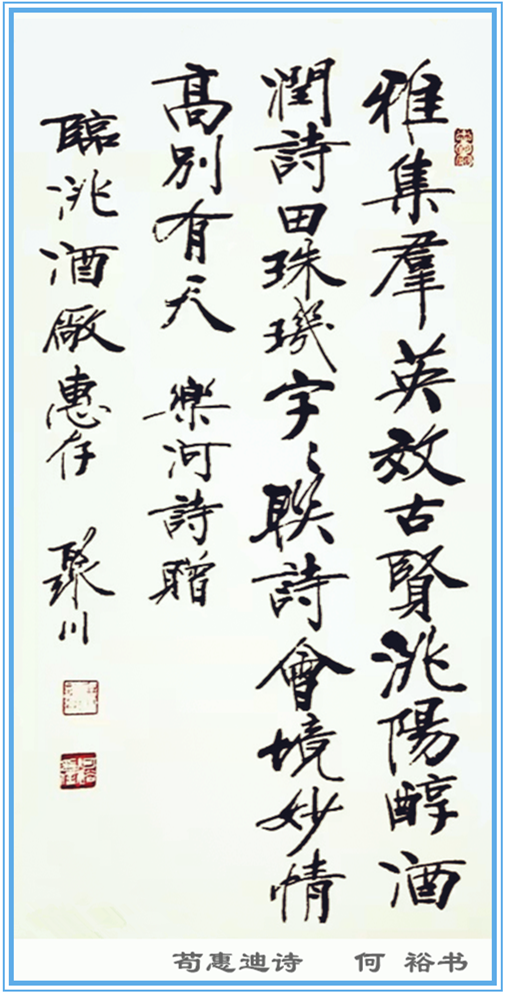 雅集羣英效古賢洮陽醇酒
潤詩田珠璣字〻聯詩會境妙情
高別有天 樂河詩贈
臨洮酒廠惠存 聚川
荀惠迪诗 何裕书